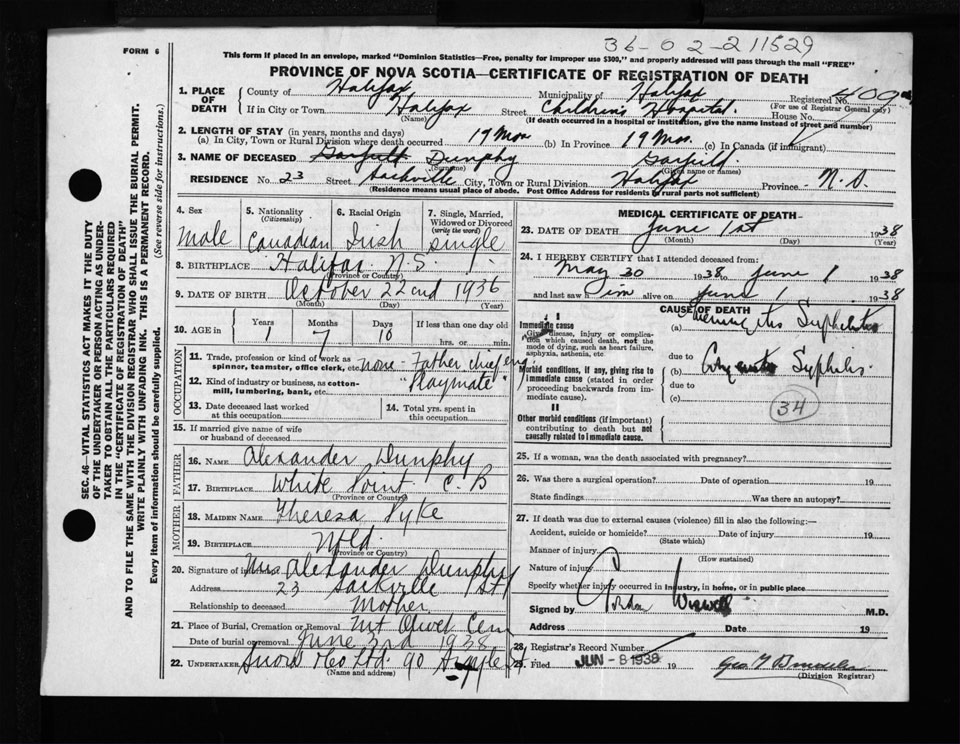 36-02-2 11529
FORM 6
This form if placed in an envelope, marked "Dominion Statistics—Free, penalty for improper use $300," and properly addressed will pass through the mail "FREE"
PROVINCE OF NOVA SCOTIA—CERTIFICATE OF REGISTRATION OF DEATH
1. PLACE OF DEATH
County of Halifax Municipality of Halifax Registered No. 409
(For use of Registrar General only)
If in City or Town Halifax Street Children's Hospital House No.
(Name) (If death occurred in a hospital or institution, give the name instead of street and number)
2. LENGTH OF STAY (in years, months and days)
(a) In City, Town or Rural Division where death occurred 19 Mos (b) In Province 19 Mos. (c) In Canada (if immigrant)
3. NAME OF DECEASED Garfield Dunphy Garfield
(Surname) (Given name or names)
RESIDENCE No. 23 Street Sackville City, Town or Rural Division Halifax Province N.S.
(Residence means usual place of abode. Post Office Address for residents in rural parts not sufficient)
4. Sex
Male
5. Nationality
(Citizenship)
Canadian
6. Racial Origin
Irish
7. Single, Married, Widowed or Divorced
(write the word)
single
8. BIRTHPLACE Halifax N.S.
(Province or Country)
9. DATE OF BIRTH October 22nd 1936
(Month) (Day) (Year)
10. AGE in
Years Months Days If less than one day old
1 7 10 hrs. or min.
OCCUPATION
11. Trade, profession or kind of work as spinner, teamster, office clerk, etc. none - Father chief eng
12. Kind of industry or business, as cotton-mill, lumbering, bank, etc. "Playmate"
13. Date deceased last worked at this occupation
14. Total yrs. spent in this occupation
15. If married give name of wife or husband of deceased
FATHER
16. NAME Alexander Dunphy
17. BIRTHPLACE White Point C.B
(Province or Country)
MOTHER
18. MAIDEN NAME Theresa Pyke
19. BIRTHPLACE Nfld.
(Province or Country)
20. Signature of informant Mrs Alexander Dunphy
Address 23 Sackville St
Relationship to deceased Mother
21. Place of Burial, Cremation or Removal Mt Olivet Cem
Date of burial or removal June 3rd 1938
22. UNDERTAKER Snow & Co Ltd. 90 Argyle St
(Name and address)
MEDICAL CERTIFICATE OF DEATH
23. DATE OF DEATH June 1st 1938
(Month) (Day) (Year)
24. I HEREBY CERTIFY that I attended deceased from:
May 30 1938 to June 1 1938
and last saw him alive on June 1 1938
CAUSE OF DEATH
I
Immediate cause
Give disease, injury or complication which caused death, not the mode of dying, such as heart failure, asphyxia, asthenia, etc
(a) Meningitis Syphilitic
due to
Morbid conditions, if any, giving rise to immediate cause (stated in order proceeding backwards from immediate cause).
(b) Syphilis.
due to
(c)
34
II
Other morbid conditions (if important) contributing to death but not causally related to immediate cause.
25. If a woman, was the death associated with pregnancy?
26. Was there a surgical operation? Date of operation 19
State findings Was there an autopsy?
27. If death was due to external causes (violence) fill in also the following:—
Accident, suicide or homicide? Date of injury 19
(State which)
Manner of injury
(How sustained)
Nature of injury
Specify whether injury occurred in industry, in home, or in public place
Signed by Gordon Wiswell M.D.
Address Date 19
28. Registrar's Record Number
29. Filed JUN - 8 1938 19
(Division Registrar)
SEC. 46—VITAL STATISTICS ACT MAKES IT THE DUTY
OF THE UNDERTAKER OR PERSON ACTING AS UNDER-
TAKER TO OBTAIN ALL THE PARTICULARS REQUIRED
IN THE "CERTIFICATE OF REGISTRATION OF DEATH"
AND TO FILE THE SAME WITH THE DIVISION REGISTRAR WHO SHALL ISSUE THE BURIAL PERMIT.
WRITE PLAINLY WITH UNFADING INK. THIS IS A PERMANENT RECORD.
Every item of information should be carefully supplied. (See reverse side for instructions.)